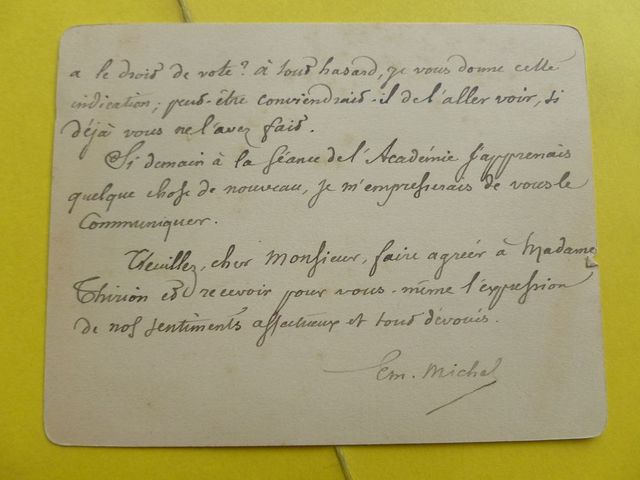 a le droit de vote? à tout hasard, je vous donne cette
indication; peut-être conviendrait-il de l'aller voir, si
déjà vous ne l'avez fait.
Si demain à la séance de l'Académie j'apprenais
quelque chose de nouveau, je m'empresserais de vous le
communiquer.
Veuillez, cher Monsieur, faire agréer à Madame
Thirion et recevoir pour vous-même l'expression
de nos sentiments affectueux et tout dévoués.
Em. Michel